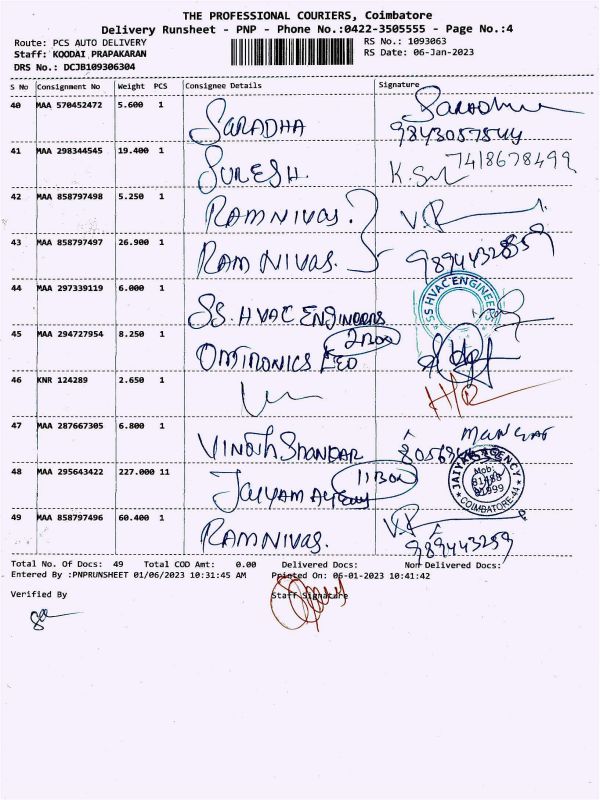 THE PROFESSIONAL COURIERS, Coimbatore
Delivery Runsheet - PNP - Phone No.:0422-3505555 - Page No.:4
Route: PCS AUTO DELIVERY RS No.: 1093063
Staff: KOODAI PRAPAKARAN RS Date: 06-Jan-2023
DRS No.: DCJB109306304
S No Consignment No Weight PCS Consignee Details Signature
40 MAA 570452472 5.600 1 SARADHA
9843057544
41 MAA 298344545 19.400 1 SURESH. 7418678499
42 MAA 858797498 5.250 1 RAMNIVAS.
43 MAA 858797497 26.900 1 RAMNIVAS.
44 MAA 297339119 6.000 1 SS. HVAC ENGINEERS SS HVAC ENGINEERS
45 MAA 294727954 8.250 1 2 Box
46 KNR 124289 2.650 1
47 MAA 287667305 6.800 1 VINOTH SHANKAR
48 MAA 295643422 227.000 11 JAIYAM AGENCY 11 Box JAIYAM AGENCY Mob: COIMBATORE-44
49 MAA 858797496 60.400 1 RAMNIVAS. V.R
989443259
Total No. Of Docs: 49 Total COD Amt: 0.00 Delivered Docs: Non Delivered Docs:
Entered By :PNPRUNSHEET 01/06/2023 10:31:45 AM Printed On: 06-01-2023 10:41:42
Verified By Staff Signature